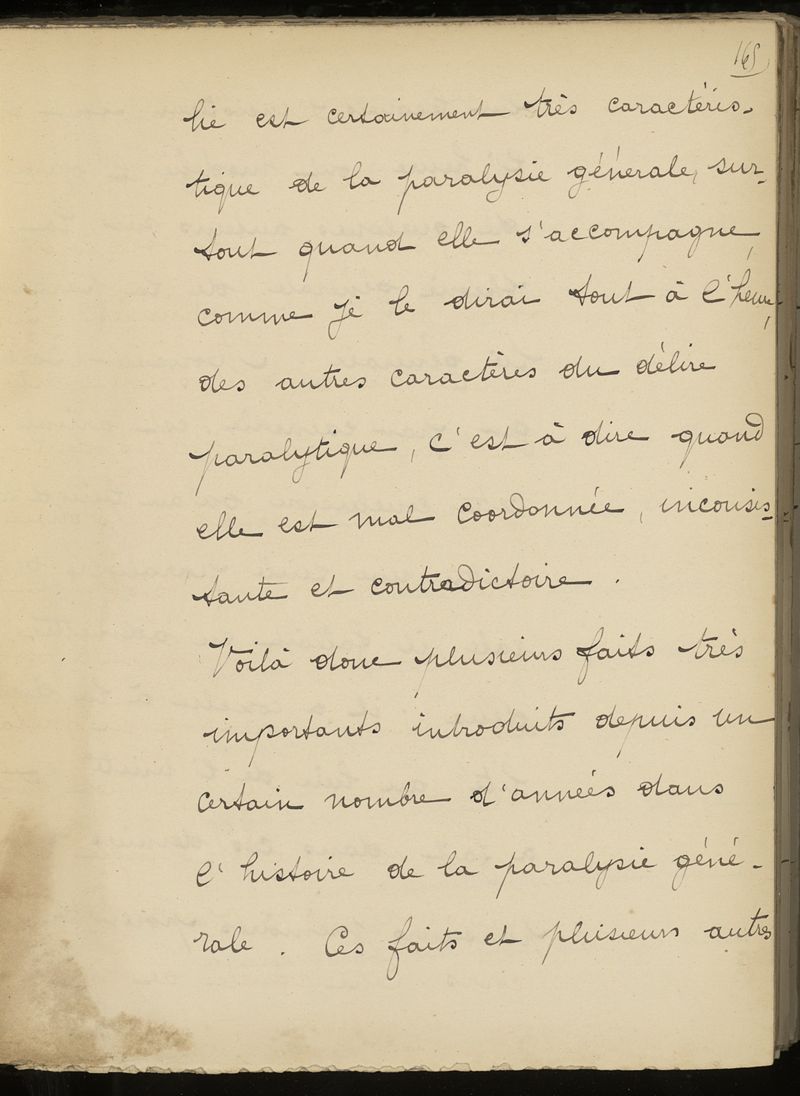 165
lie est certainement très caractéris-
tique de la paralysie générale, sur-
tout quand elle s'accompagne,
comme je le dirai tout à l'heure,
des autres caractères du délire
paralytique, c'est à dire quand
elle est mal coordonnée, inconsis-
tante et contradictoire.
Voilà donc plusieurs faits très
importants introduits depuis un
certain nombre d'années dans
l'histoire de la paralysie géné-
rale. Ces faits et plusieurs autres